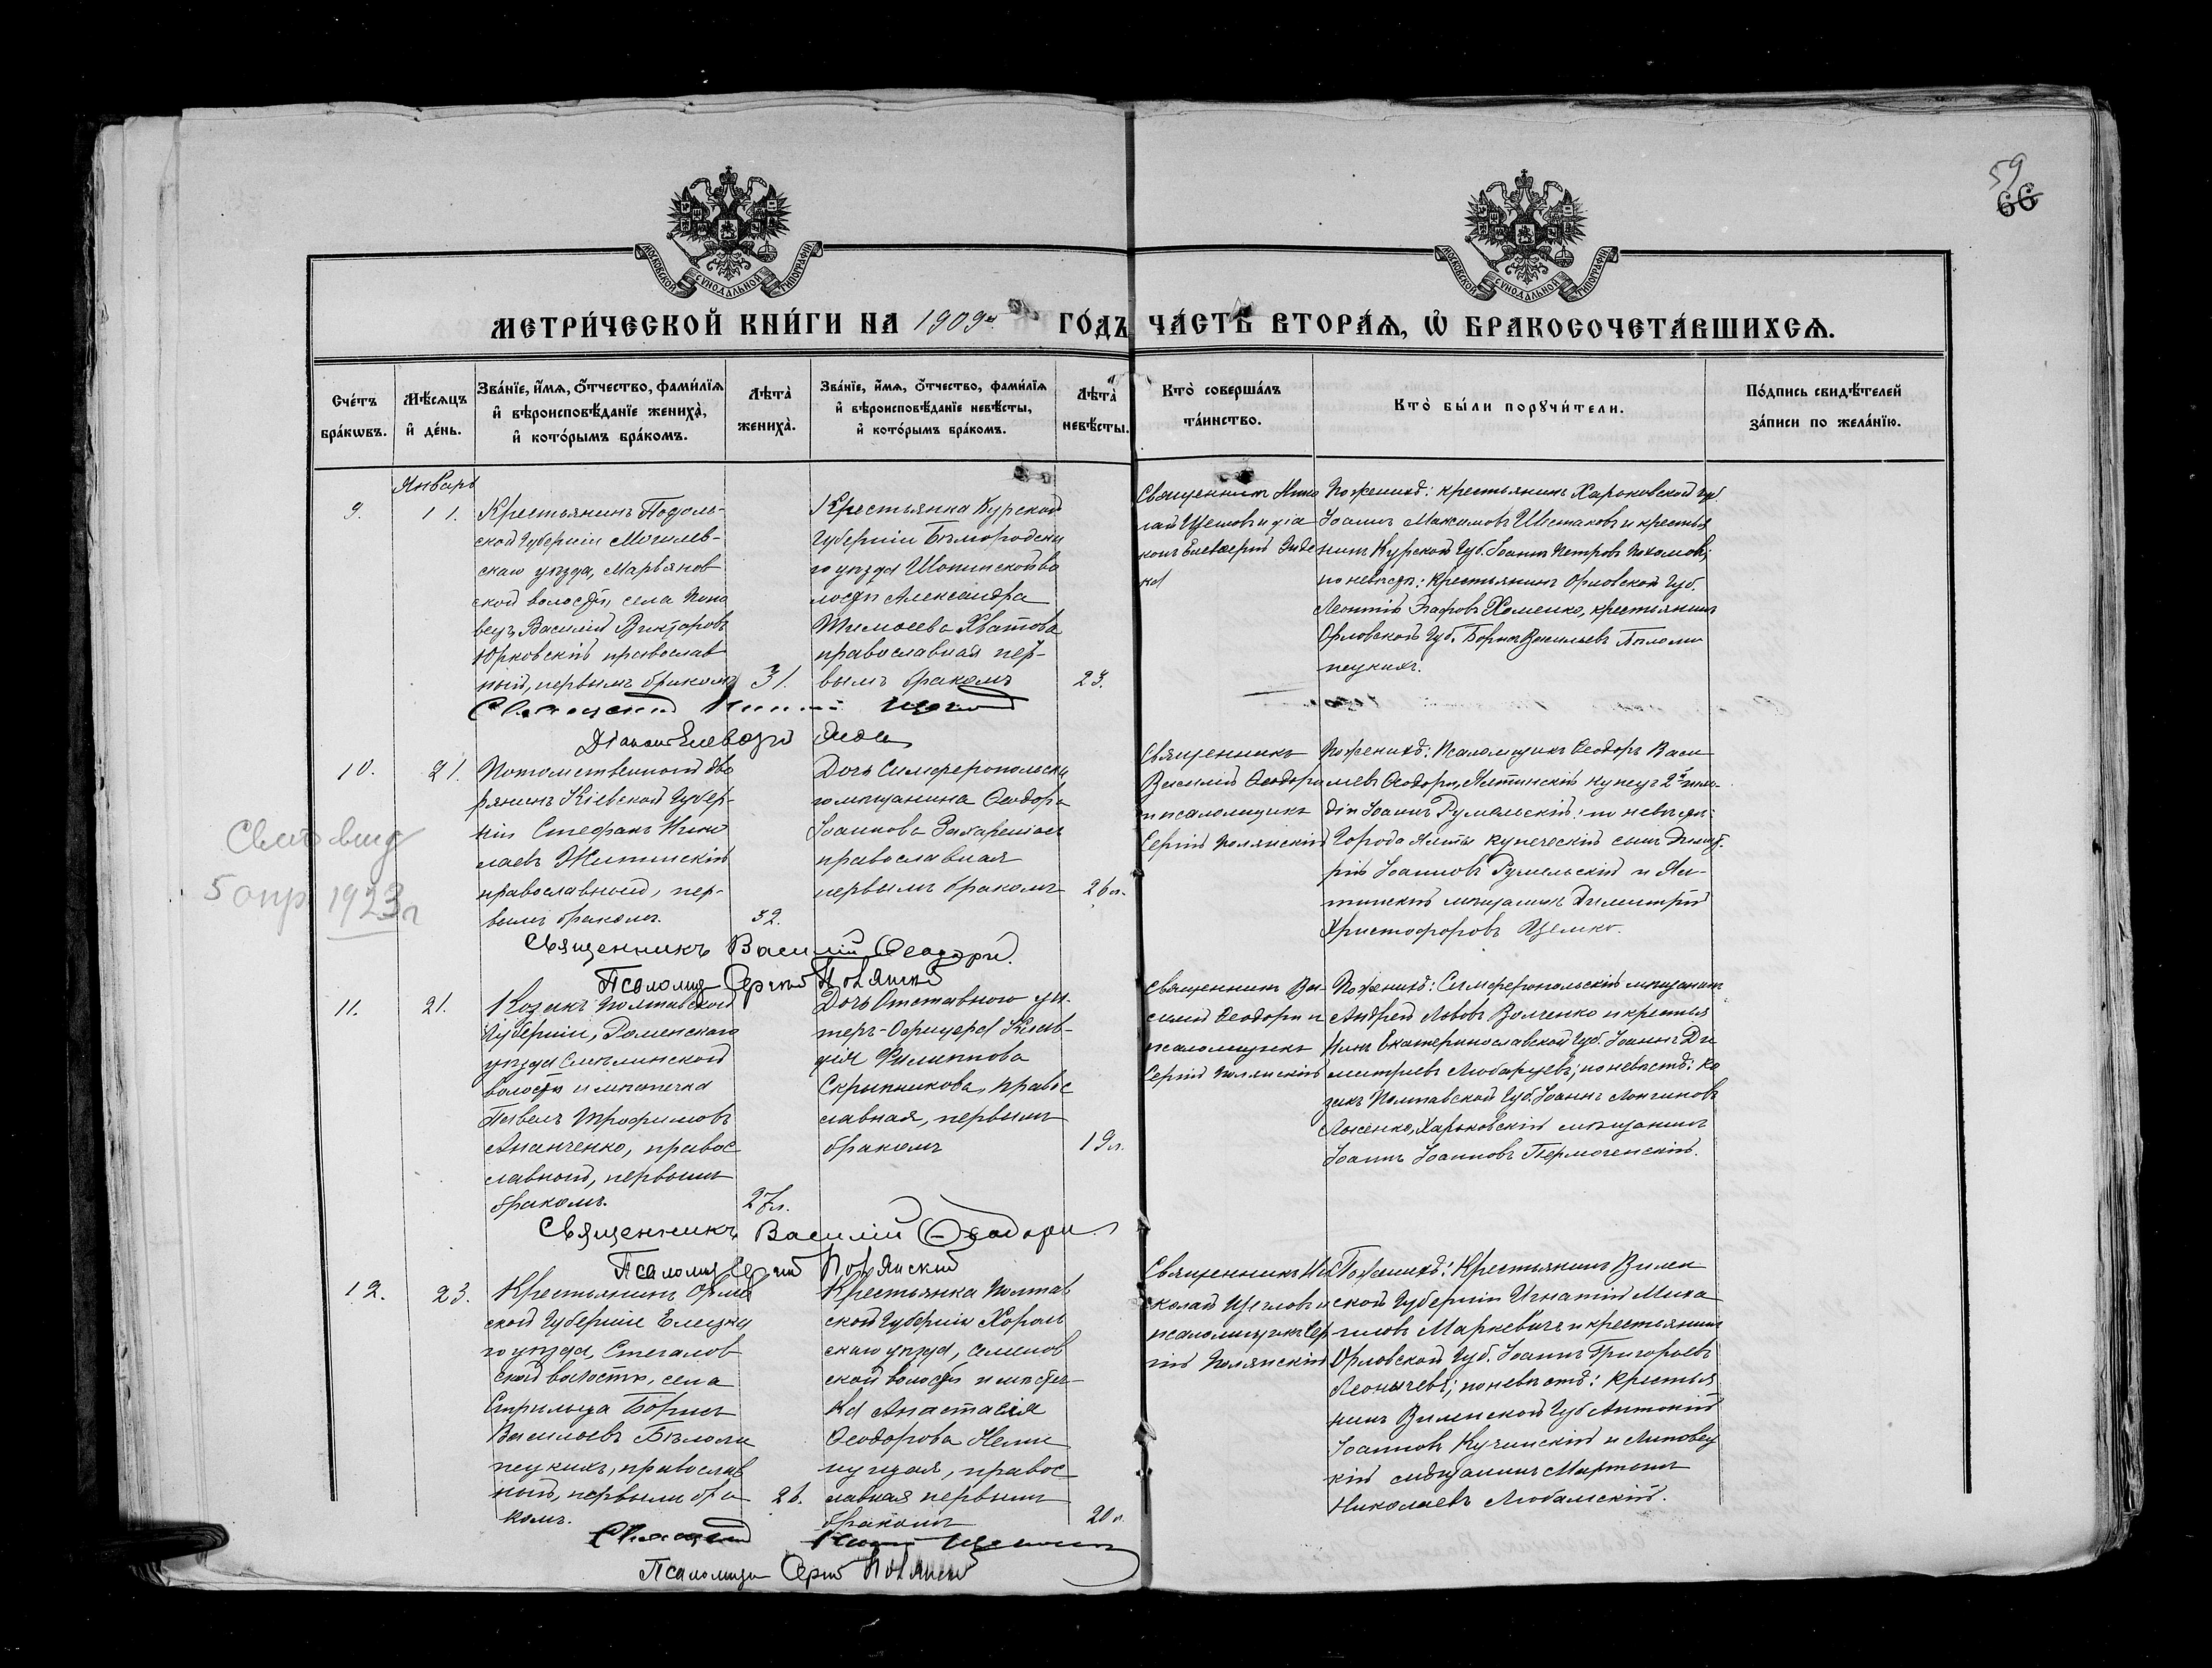 59
66
МОСКОВСКОЙ СѴНОДАЛЬНОЙ ТИПОГРАФІИ
МОСКОВСКОЙ СѴНОДАЛЬНОЙ ТИПОГРАФІИ
МЕТРИ́ЧЕСКОЙ КНИ́ГИ НА 1909й ГО́ДЪ ЧА́СТЬ ВТОРА́Ѧ, Ѡ҆ БРАКОСОЧЕТА́ВШИХСѦ.
Сче́тъ бра́кѡвъ.
Мѣ́сяцъ и҆ де́нь.
Зва́нїе, и҆́мѧ, ѻ҆́тчество, фами́лїѧ и҆ вѣроисповѣ́данїе жениха̀, и҆ кото́рымъ бра́комъ.
Лѣта̀ жениха̀.
Зва́нїе, и҆́мѧ, ѻ҆́тчество, фами́лїѧ и҆ вѣроисповѣ́данїе невѣ́сты, и҆ кото́рымъ бра́комъ.
Лѣта̀ невѣ́сты.
Кто̀ соверша́лъ та́инство.
Кто̀ бы́ли порꙋчи́тели.
По́дпись свидѣ́телей за́писи по жела́нїю.
Январь
9.
11.
Крестьянинъ Подоль-
ской Губерніи Могилев-
скаго уѣзда, Марьянов
ской волости, села
Василій Викторовъ
Юрковскій православ
ный, первымъ бракомъ
31.
Крестьянка Курской
Губерніи Бѣлгородска
го уѣзда Шопинской во
лости Александра
Тимоѳеева Хватова
православная пер-
вымъ бракомъ
23.
Священникъ Нико
лай Щегловъ и діа
конъ Елевѳерій
По женихѣ: крестьянинъ Харьковской губ
Іоаннъ Максимовъ Шестаковъ и крестья
нинъ Курской Губ. Іоаннъ Петровъ Пахомовъ;
по невѣстѣ: Крестьянинъ Орловской Губ.
Леонтій Хоменко, крестьянинъ
Орловской Губ. Борисъ Васильевъ Бѣлоли
пецкихъ.
Священникъ Щеглов
Діаконъ Елевѳерій
10.
21.
Потомственный дво
рянинъ Кіевской Губер-
ніи Стефанъ Нико
лаевъ Житинскій
православный, пер-
вымъ бракомъ.
32.
Дочь Симферопольска
го мѣщанина Ѳеодора
Іоаннова
православная
первымъ бракомъ
26 л.
Священникъ
Василій Ѳеодори
и псаломщикъ
Сергій Полянскій
По женихѣ: Псаломщикъ Ѳеодоръ Васи
льевъ Ѳеодори, Ялтинскій купецъ 2й гиль
діи Іоаннъ Румельскій; по невѣстѣ:
Города Ялты купеческій сынъ Димит
рій Іоанновъ Румельскій и Ял-
тинскій мѣщанинъ Димитрій
Христофоровъ
Священникъ Василій Ѳеодори.
Псаломщ Сергій Полянскій
5 апр 1923 г
11.
21.
Козакъ Полтавской
Губерніи, Роменскаго
уѣзда Смѣлинской
волости и мѣстечка
Павелъ Трофимовъ
Ананченко, правос
лавный, первымъ
бракомъ.
27 л.
Дочь Отставного ун-
теръ-Офицера Клав-
дія Филиппова
Скрыпникова, правос
славная, первымъ
бракомъ
19 л.
Священникъ Ва-
силій Ѳеодори и
псаломщикъ
Сергій Полянскій
По женихѣ: Симферопольскій мѣщанинъ
Андрей Львовъ Волченко и крестья
нинъ Екатеринославской Губ. Іоаннъ Ди
митріевъ Любарцевъ; по невѣстѣ: Ко
закъ Полтавской Губ. Іоаннъ Лонгиновъ
Харьковскій мѣщанинъ
Іоаннъ Іоанновъ Пермогенскій.
Священникъ Василій Ѳеодори
Псаломщ Сергій Полянскій
12.
23.
Крестьянинъ Орлов
ской Губерніи Елецка
го уѣзда, Стегалов
ской волости, села
Борисъ
Васильевъ Бѣлоли
пецкихъ, православ
ный, первымъ бра
комъ.
26.
Крестьянка Полтав
ской Губерніи Хороль
скаго уѣзда, Семенов
ской волости и мѣстеч-
ка Анастасія
Ѳеодорова
правос
лавная первымъ
бракомъ
20 л.
Священникъ Ни
колай Щегловъ и
псаломщикъ Сер
гій Полянскій
По женихѣ: Крестьянинъ Вилен
ской Губерніи Игнатій Миха
иловъ Маркевичъ и крестьянинъ
Орловской Губ. Іоаннъ Григорьевъ
по невѣстѣ: Крестья
нинъ Виленской Губ Антоній
Іоанновъ Кучинскій и Липовец
кій мѣщанинъ Мартинъ
Николаевъ Любамскій.
Псаломщ Сергій Полянскій